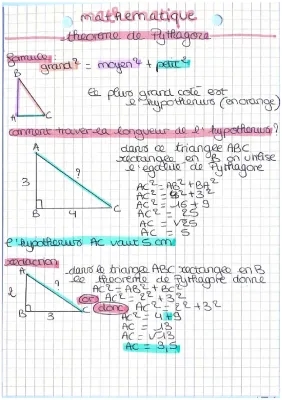 mathematique
theoreme de Pythagore
formule:
grand² = moyen² + petit²
B
A
C
le plus grand coté est
l'hypothenus (en orange)
comment trouver la longueur de l'hypothenus?
A
3
?
B
4
C
dans ce triangle ABC
rectangle en B on utilise
l'egalité de Pythagore
AC² = AB² + BA²
AC² = 4² + 3²
AC² = 16 + 9
AC² = 25
AC = √25
AC = 5
l'hypothenus AC vaut 5 cm
redaction
A
2
?
B
3
C
dans le triangle ABC rectangle en B
le theoreme de Pythagore donne
AC² = AB² + BC²
or AC² = 2² + 3²
donc AC² = 2² + 3²
AC² = 4 + 9
AC = 13
AC = √13
AC = 3,5